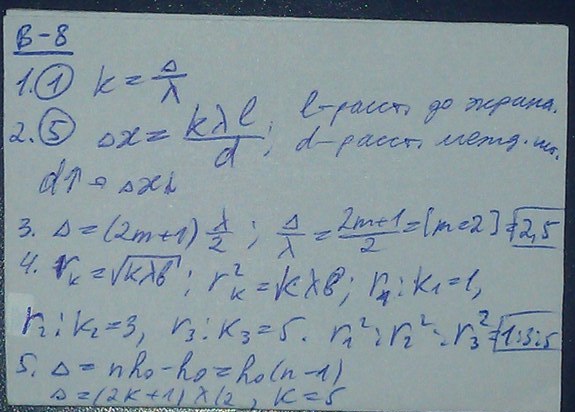 В-8
1. ① k = Δ/λ
2. ⑤ Δx = kλl/d; l-расст. до экрана.
d-расст. межд. ист.
d↑ → Δx↓
3. Δ = (2m+1) λ/2; Δ/λ = (2m+1)/2 = [m=2] = 2,5
4. r_k = √(kλb); r_k² = kλb; r₁: k₁=1,
r₂: k₂=3, r₃: k₃=5. r₁²:r₂²:r₃² = 1:3:5
5. Δ = nh₀-h₀ = h₀(n-1)
Δ=(2k+1)λ/2, k=5